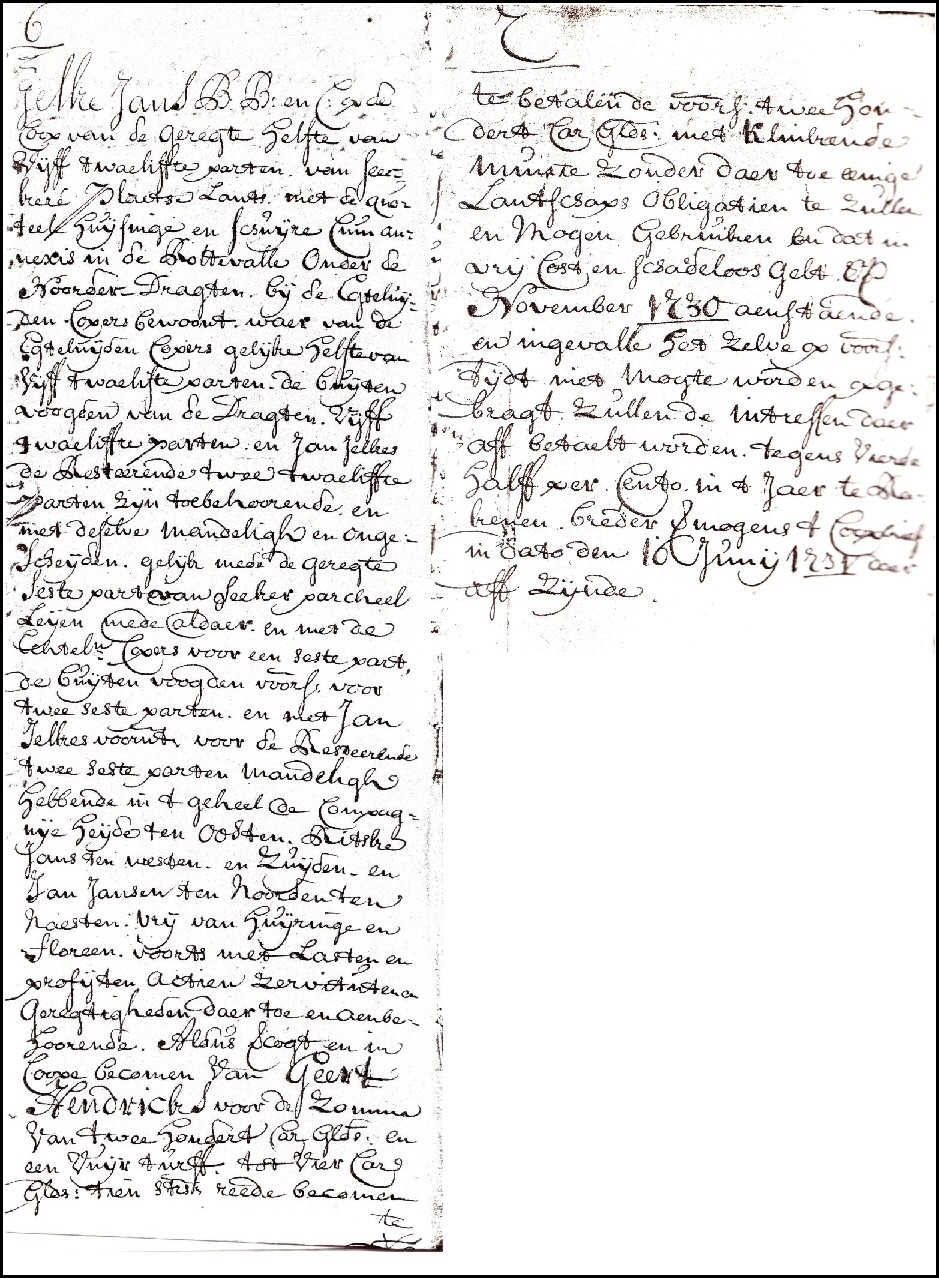 6
Jelke Jans B. B: en C: op de
Coop van de geregte Helfte van
Vijff twaeliffte parten van seec-
kere Plaetse Lants met de quo-
teel Huijsinge en schuijre Cum an-
nexis in de Rottevalle Onder de
Noorder-Dragten bij de Egteluij-
den Copers bewoont waer van de
Egteluijden Copers gelijke Helfte van
Vijff twaelifte parten de buijten
voogden van de Dragten Vijff
twaeliffte parten en Jan Jelkes
de Resteerende twee twaeliffte
parten Zijn toebehoorende en
met deselve mandeligh en onge-
scheijden gelijk mede de geregte
seste part van seeker parcheel
Leijen mede aldaer en met de
Echtel: Copers voor een seste part,
de buijten voogden voors: voor
twee seste parten en met Jan
Jelkes voornt, voor de Resteerende
twee seste parten mandeligh
Hebbende in t geheel de Compag-
nije Heijde ten Oosten Ritske
Jans ten westen en Zuijden en
Jan Jansen ten Noorden ten
Naesten vrij van Huijringe en
Floreen voorts met Lasten en
profijten Actien Zervituten en
Geregtigheden daer toe en aenbe-
hoorende. Aldus Cogt en in
Coope becomen van Geert
Hendriks voor de Zomma
Van twee Hondert Car Glds: en
een Vuijr turff tot Vier Car
Glds: tien st: reede becomen
te
7
te betalen de voors: twee Hon-
dert Car Glds: met Klinkende
Munte Zonder daer toe eenige
Lantschaps Obligatien te Zullen
en Mogen Gebruiken en dat in
vrij Cost en schadeloos Gelt Op
November 1730 aenstaende
en ingevalle Het Zelve op voors:
tijdt niet Mogte worden opge-
bragt Zullen de intressen daer
aff betaelt worden tegens Vierde
Halff per Cento in t Jaer te Re-
kenen breder vermogens t Coopbrief
in dato den 16 Junij daer
aff Zijnde.